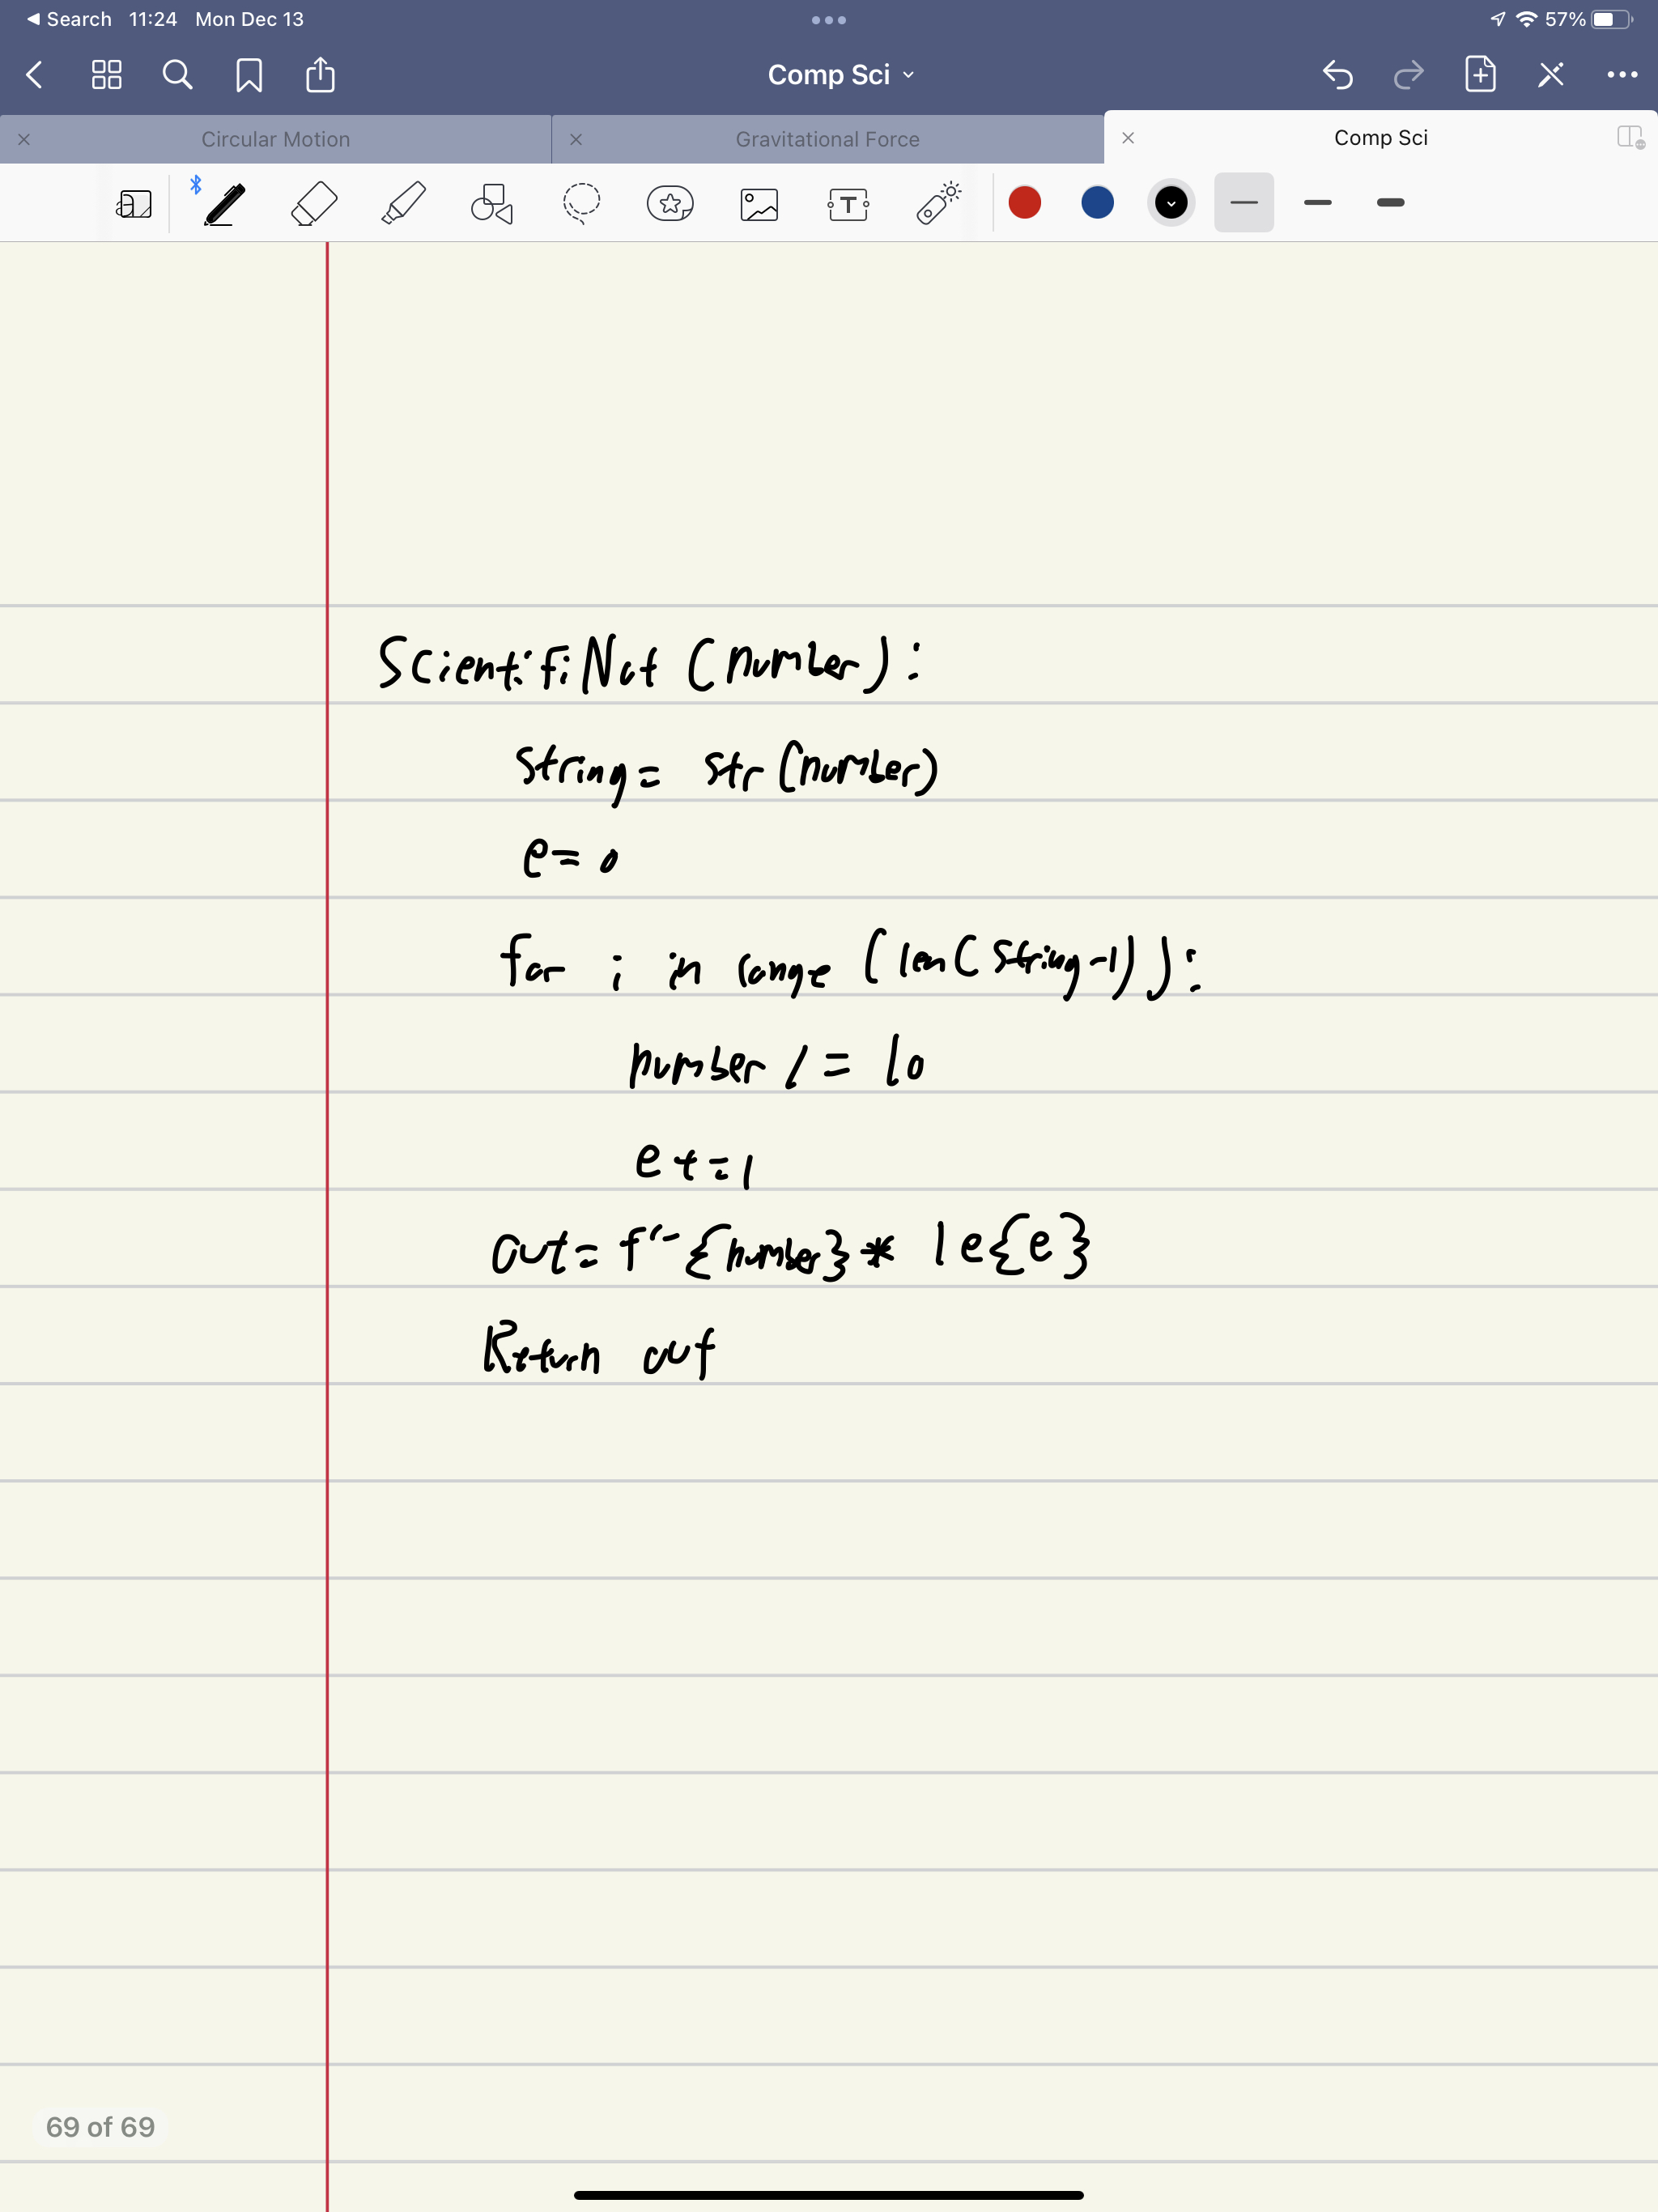 Search 11:24 Mon Dec 13 57%
Comp Sci
Circular Motion Gravitational Force Comp Sci
ScientifiNot (number):
string= str(number)
e=0
for i in range (len(string-1)):
number /= 10
e+=1
out= f"{number}* 1e{e}
Return out
69 of 69